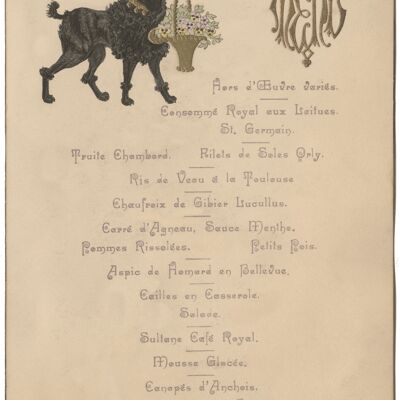 Hors d'Œuvre variés.
Consommé Royal aux Laitues.
St. Germain.
Truite Chambord. Filets de Soles Orly.
Ris de Veau á la Toulouse
Chaufroix de Gibier Lucullus.
Carré d'Agneau, Sauce Menthe.
Pommes Rissolées. Petits Pois.
Aspic de Homard en Bellevue.
Cailles en Casserole.
Salade.
Sultane Café Royal.
Mousse Glacée.
Canapés d'Anchois.